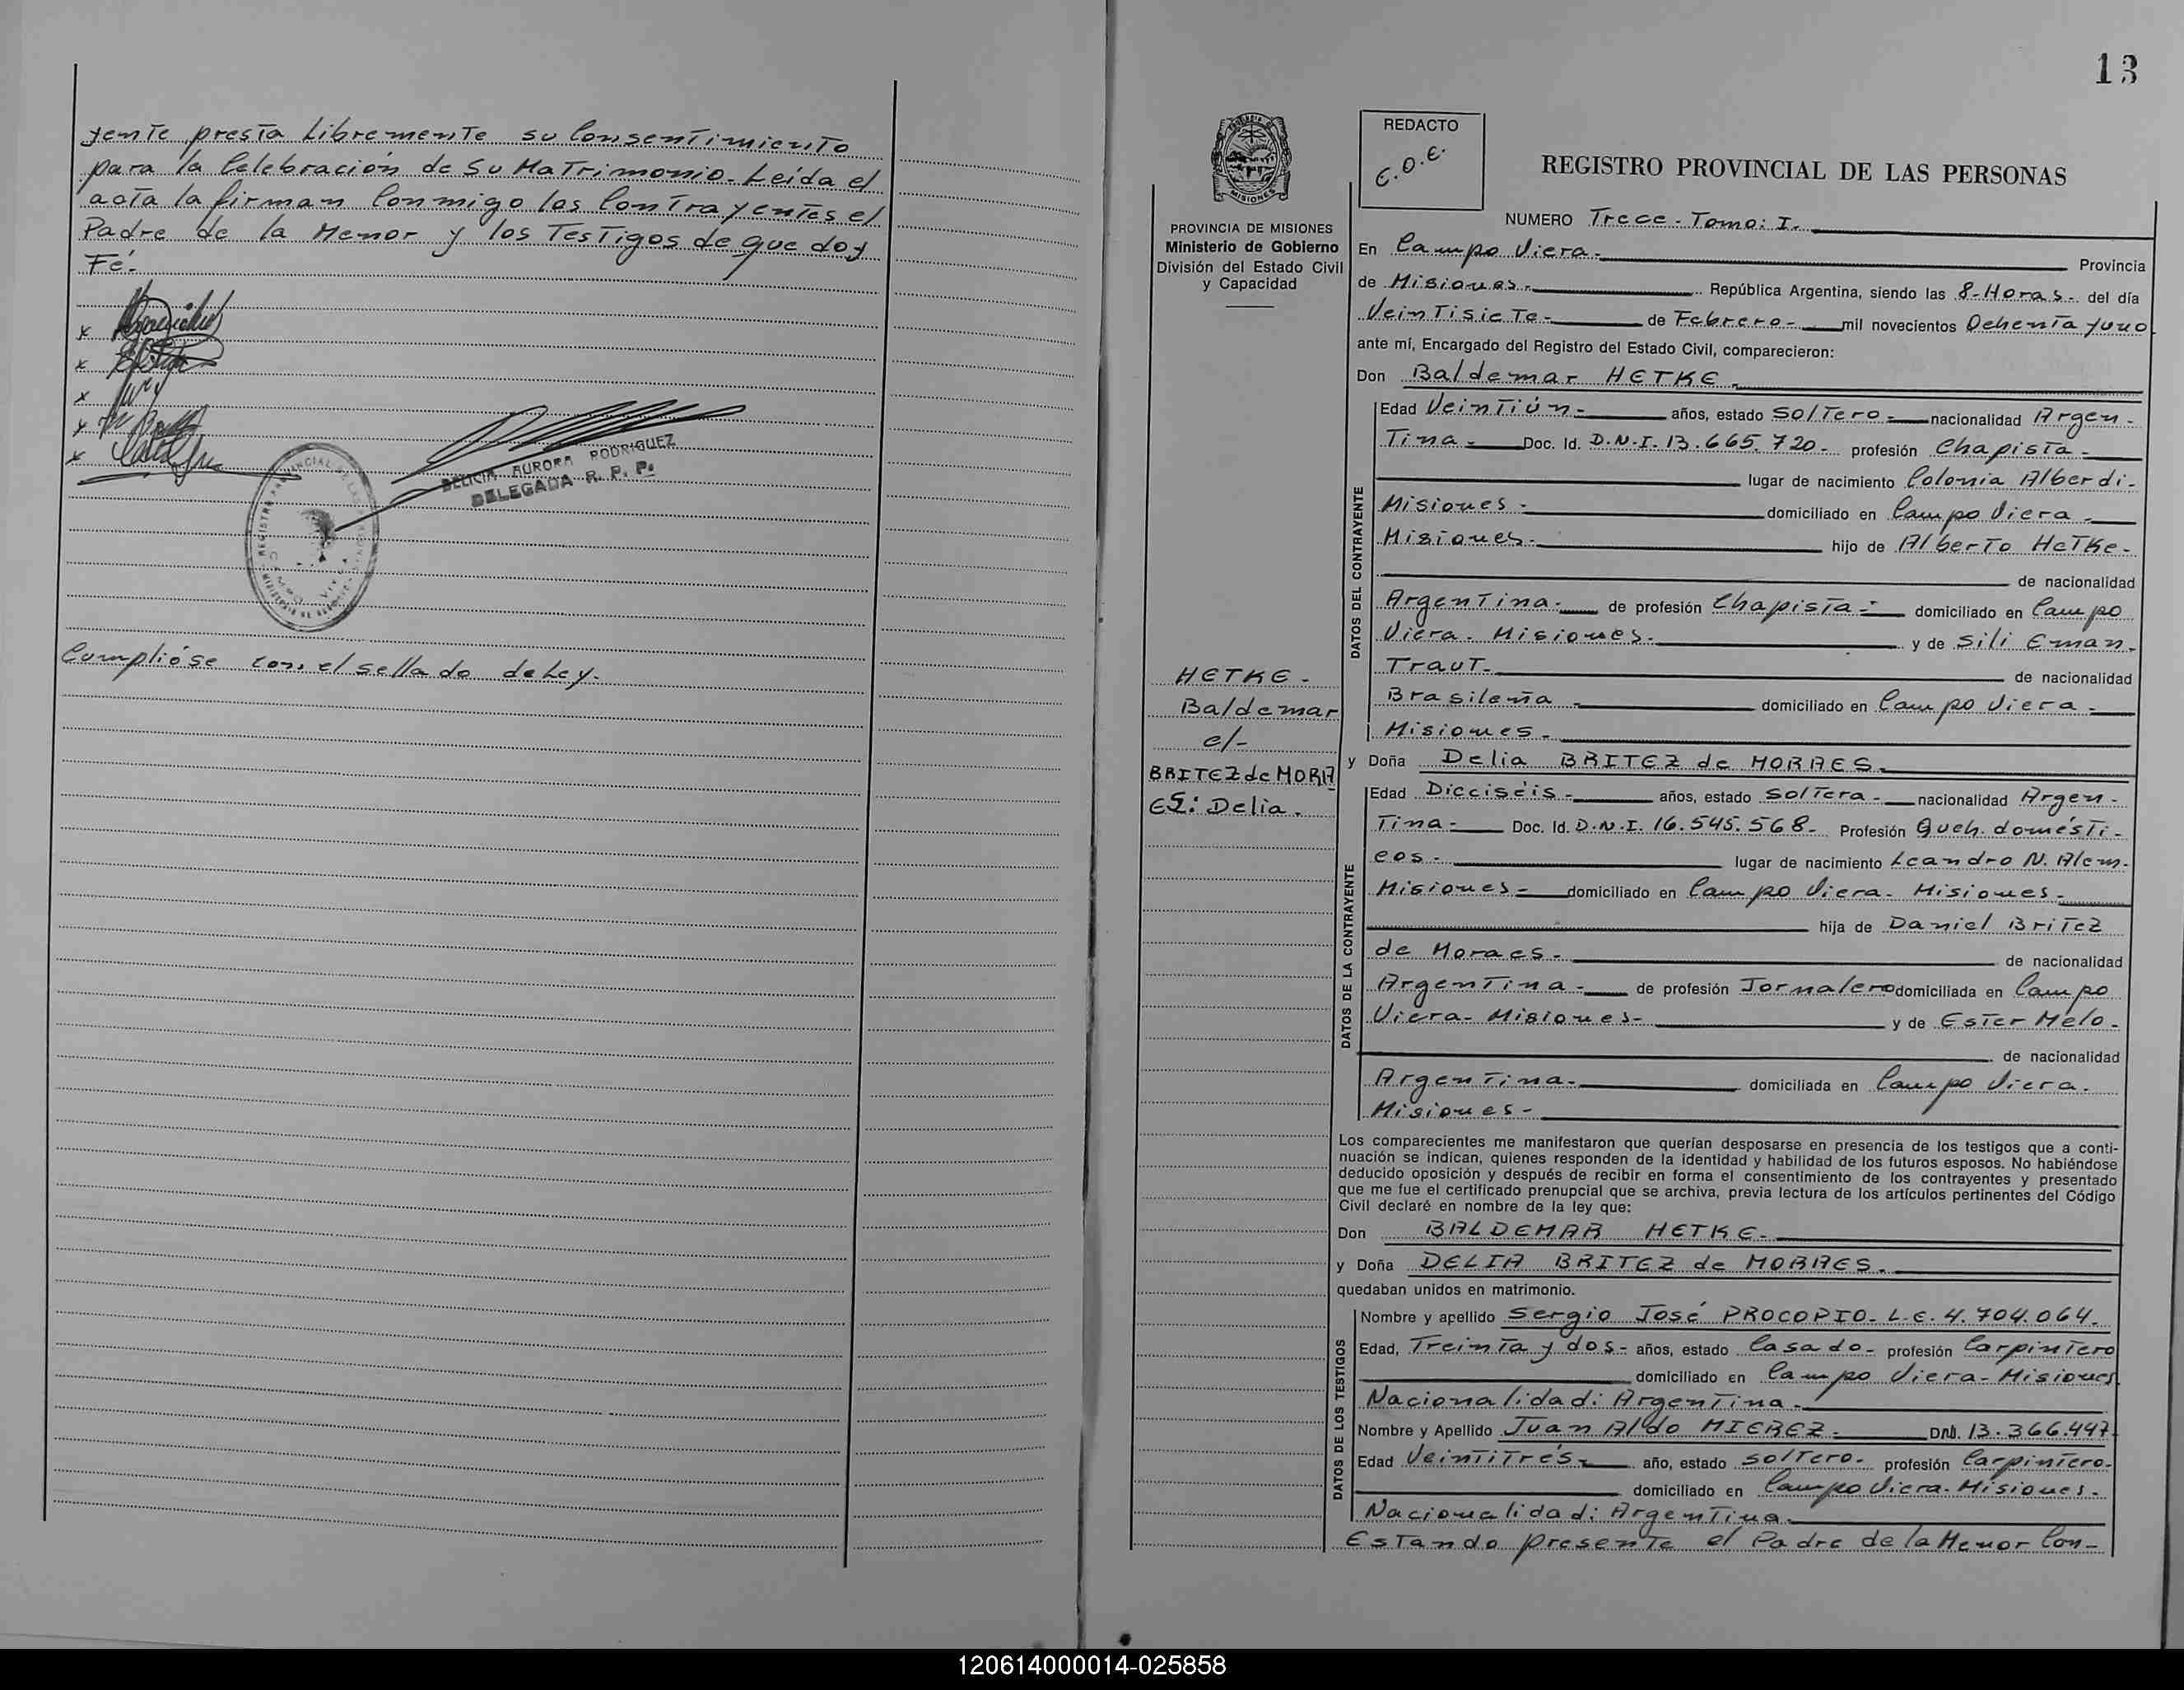 yente presta Libremente su Consentimiento
para la Celebración de Su Matrimonio. Leída el
acta la firman Conmigo los Contrayentes el
Padre de la Menor y los Testigos de que doy
Fé.-
x
x
x
x
x
DELICIA AURORA RODRIGUEZ
DELEGADA R. P. P.
Cumplióse con el sellado de Ley.
13
REDACTO
C.O.E.
REGISTRO PROVINCIAL DE LAS PERSONAS
MISIONES
PROVINCIA DE MISIONES
Ministerio de Gobierno
División del Estado Civil
y Capacidad
HETKE -
Baldemar
c/-
BRITEZ de MORA
ES: Delia.
NUMERO Trece - Tomo: I.
En Campo Viera.- Provincia
de Misiones.- República Argentina, siendo las 8-Horas- del día
Veintisiete- de Febrero- mil novecientos Ochenta y uno
ante mí, Encargado del Registro del Estado Civil, comparecieron:
Don Baldemar HETKE.
DATOS DEL CONTRAYENTE
Edad Veintiún- años, estado Soltero- nacionalidad Argen-
Tina- Doc. Id. D.N.I. 13.665.720- profesión Chapista-
lugar de nacimiento Colonia Alberdi-
Misiones- domiciliado en Campo Viera-
Misiones- hijo de Alberto HeTKe-
de nacionalidad
Argentina- de profesión Chapista- domiciliado en Campo
Viera- Misiones- y de Sili Eman-
Traut- de nacionalidad
Brasileña - domiciliado en Campo Viera-
Misiones-
y Doña Delia BRITEZ de MORAES.
DATOS DE LA CONTRAYENTE
Edad Dieciséis- años, estado Soltera- nacionalidad Argen-
Tina- Doc. Id. D.N.I. 16.545.568- Profesión Queh. domésti-
cos- lugar de nacimiento Leandro N. Alem-
Misiones- domiciliado en Campo Viera- Misiones-
hija de Daniel Britez
de Moraes- de nacionalidad
Argentina- de profesión Jornalero domiciliada en Campo
Viera- Misiones- y de Ester Melo-
de nacionalidad
Argentina- domiciliada en Campo Viera.
Misiones-
Los comparecientes me manifestaron que querían desposarse en presencia de los testigos que a conti-
nuación se indican, quienes responden de la identidad y habilidad de los futuros esposos. No habiéndose
deducido oposición y después de recibir en forma el consentimiento de los contrayentes y presentado
que me fue el certificado prenupcial que se archiva, previa lectura de los artículos pertinentes del Código
Civil declaré en nombre de la ley que:
Don BALDEMAR HETKE-
y Doña DELIA BRITEZ de MORAES.
quedaban unidos en matrimonio.
DATOS DE LOS TESTIGOS
Nombre y apellido Sergio José PROCOPIO- L.E. 4.704.064-
Edad, Treinta y dos- años, estado Casado- profesión Carpintero
domiciliado en Campo Viera- Misiones
Nacionalidad: Argentina-
Nombre y Apellido Juan Aldo MIEREZ- DNI. 13.366.447
Edad Veintitrés- año, estado soltero- profesión Carpintero-
domiciliado en Campo Viera- Misiones-
Nacionalidad: Argentina-
Estando presente el Padre de la Menor Con-
120614000014-025858